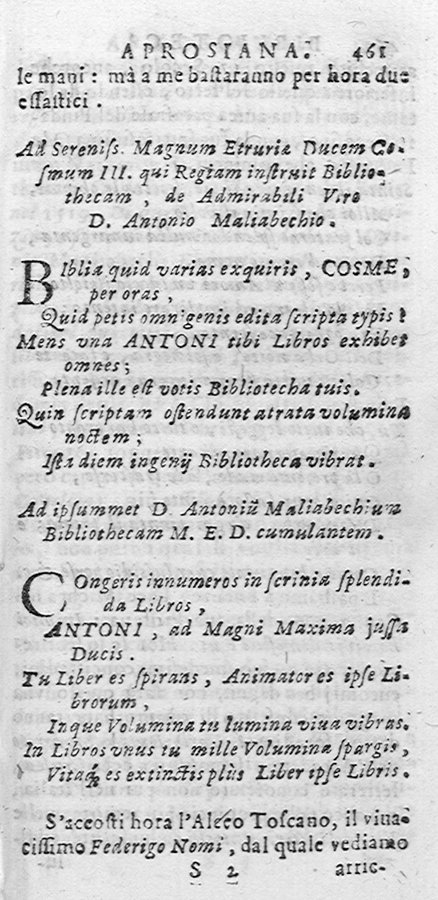 APROSIANA. 461
le mani: mà a me bastaranno per hora due
essastici.
Ad Sereniss. Magnum Etruriæ Ducem Co-
smum III. qui Regiam instruit Biblio-
thecam, de Admirabili Viro
D. Antonio Maliabechio.
BIblia quid varias exquiris, COSME,
per oras,
Quid petis omnigenis edita scripta typis?
Mens vna ANTONI tibi Libros exhibet
omnes;
Plena ille est votis Bibliotecha tuis.
Quin scriptam ostendunt atrata volumina
noctem;
Ista diem ingenij Bibliotheca vibrat.
Ad ipsummet D. Antoniũ Maliabechium
Bibliothecam M. E. D. cumulantem.
COngeris innumeros in scrinia splendi-
da Libros,
ANTONI, ad Magni Maxima jussa
Ducis.
Tu Liber es spirans, Animator es ipse Li-
brorum,
Inque Volumina tu lumina viua vibras.
In Libros vnus tu mille Volumina spargis,
Vitaq́; es extinctis plùs Liber ipse Libris.
S'accosti hora l'Alceo Toscano, il viua-
cissimo Federigo Nomi, dal quale vediamo
S 2 arric-